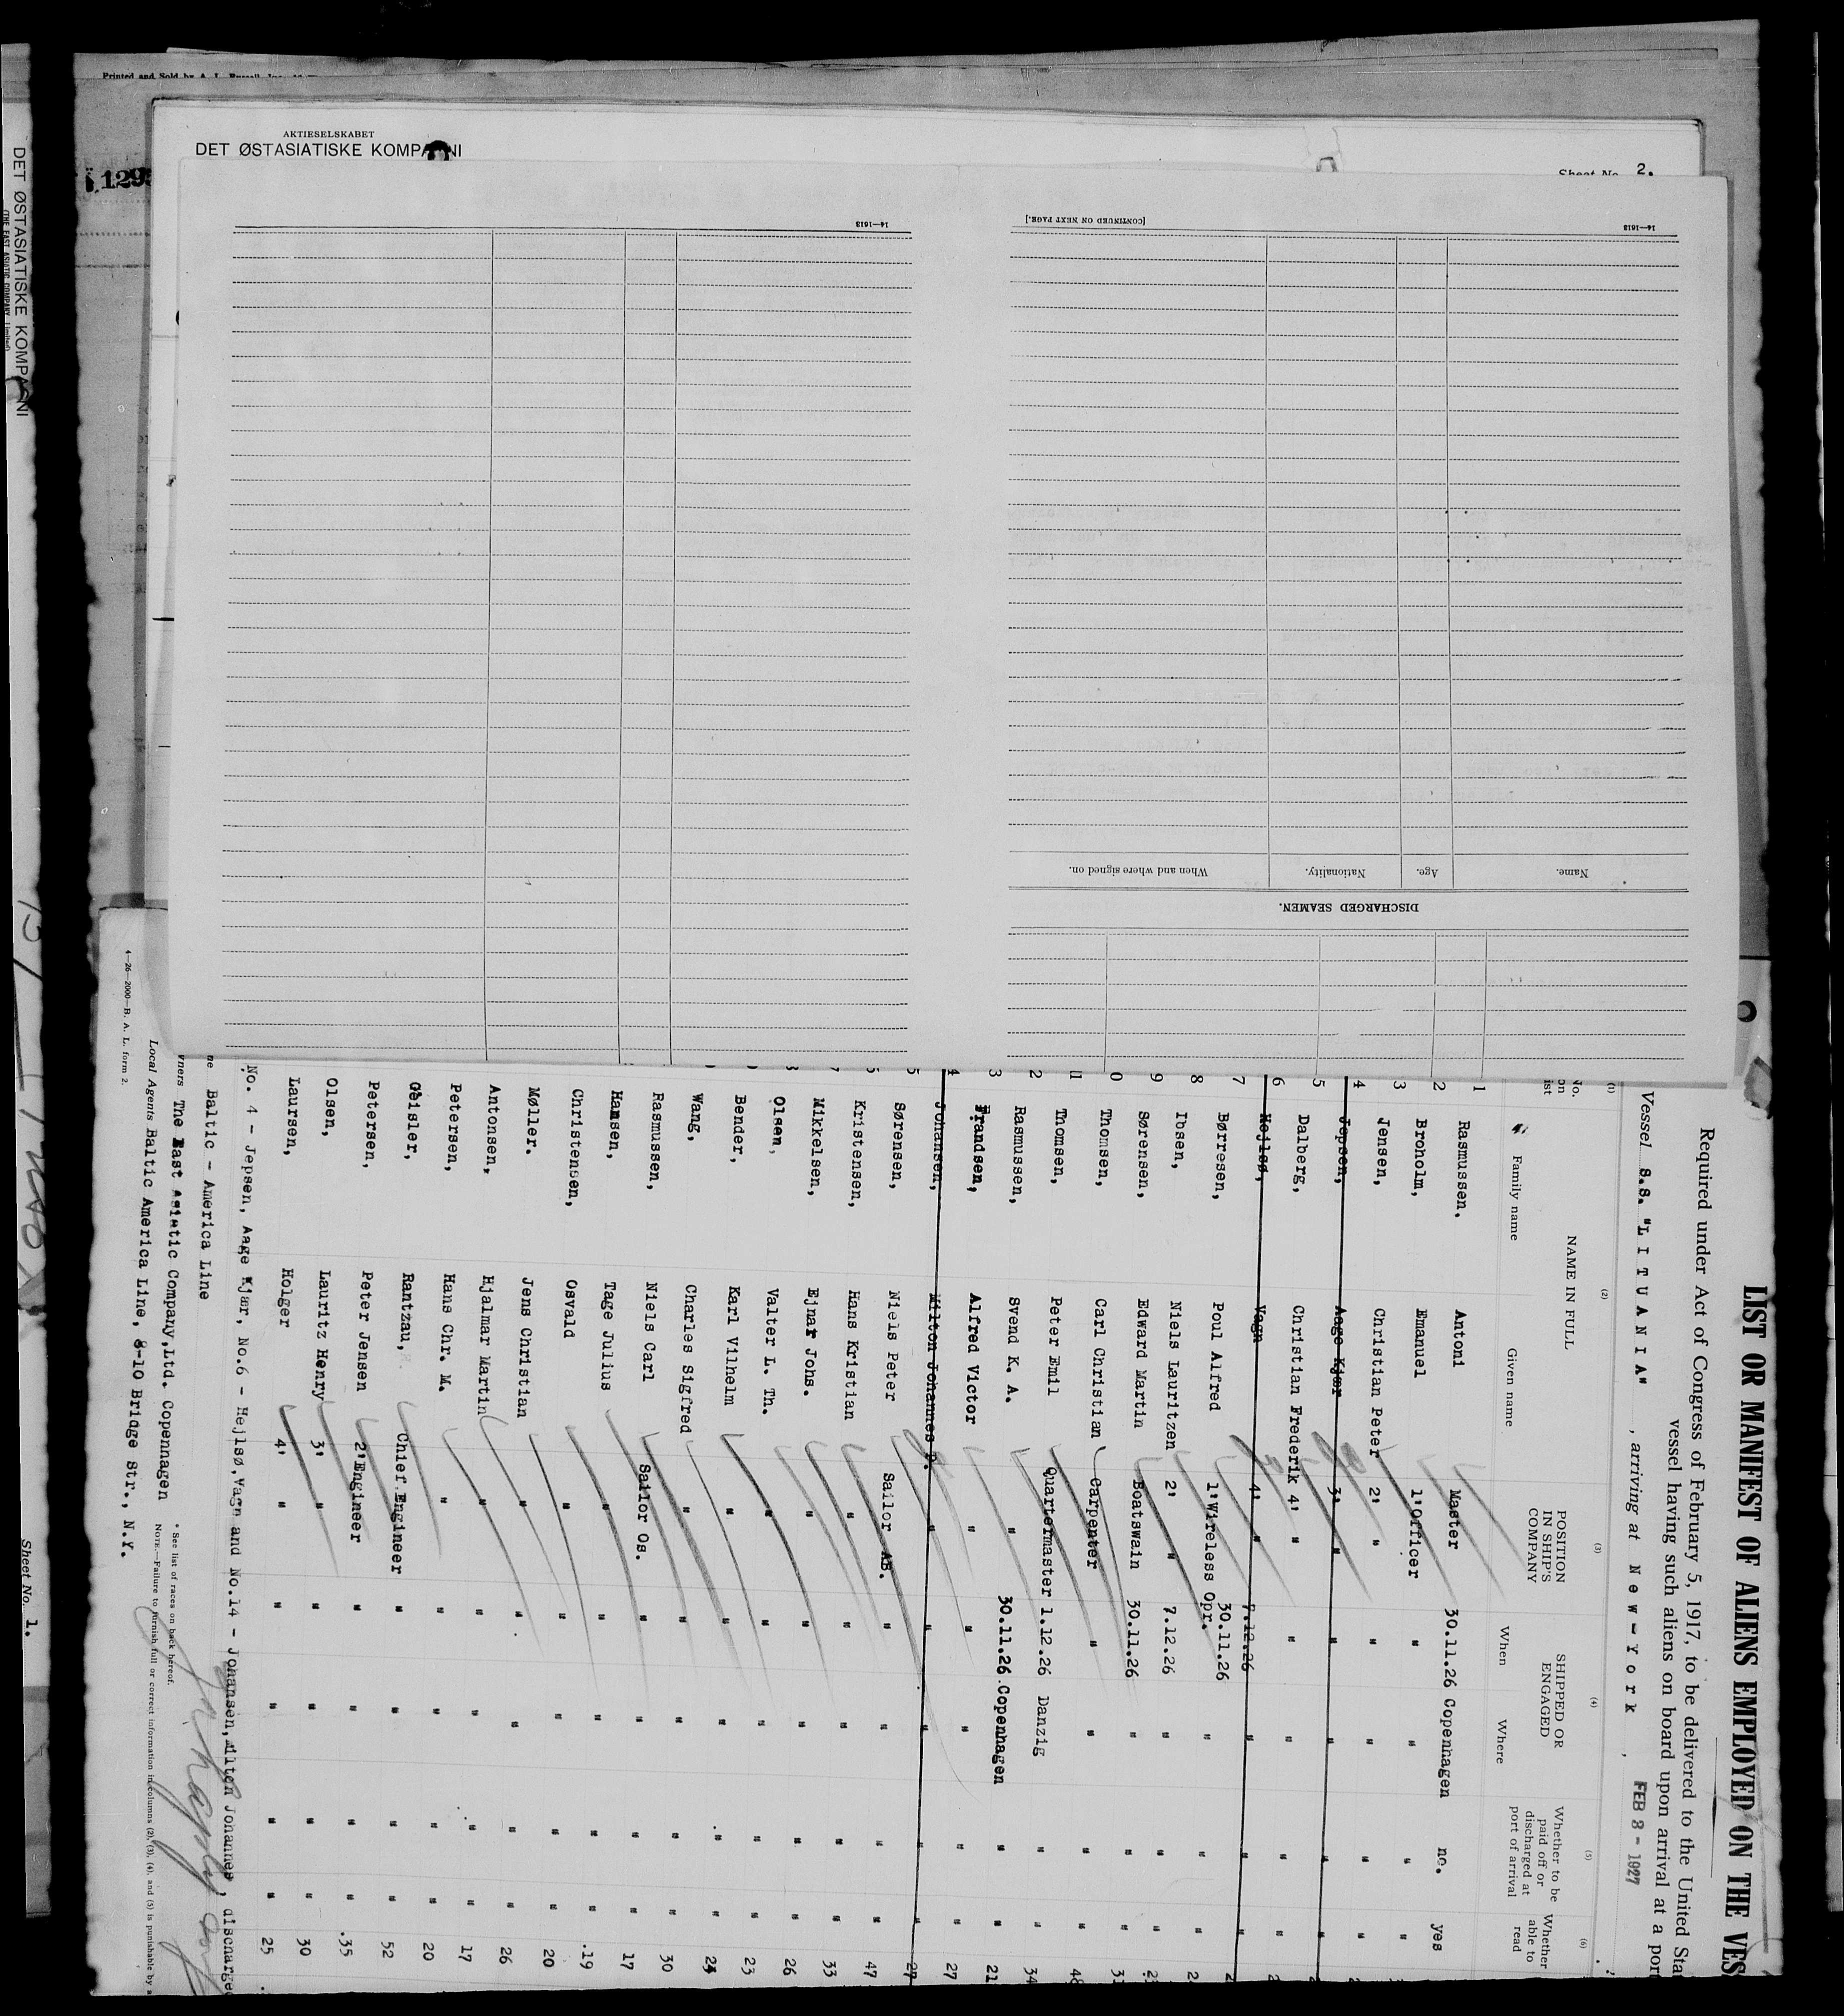 Printed and Sold by A. L.
AKTIESELSKABET
DET ØSTASIATISKE KOMPA NI
2.
14—1613
[CONTINUED ON NEXT PAGE.]
14—1613
When and where signed on.
Nationality.
Age.
Name.
DISCHARGED SEAMEN.
DET ØSTASIATISKE KOMPA NI
(THE EAST ASIATIC COMPANY, Limited)
Sheet No. 1.
LIST OR MANIFEST OF ALIENS EMPLOYED ON THE VES
Required under Act of Congress of February 5, 1917, to be delivered to the United Sta
vessel having such aliens on board upon arrival at a port
Vessel S.S. "LITUANIA" , arriving at New-York , FEB 3 - 1927
(1) (2) (3) (4) (5) (6)
No. on ist NAME IN FULL POSITION IN SHIP'S COMPANY SHIPPED OR ENGAGED Whether to be paid off or discharged at port of arrival Whether able to read
Family name Given name When Where
1 Rasmussen, Antoni Master 30.11.26 Copenhagen no. yes
2 Broholm, Emanuel 1'Officer " " " "
3 Jensen, Christian Peter 2' " " " " "
4 Jepsen, Aage Kjær 3' " " " " "
5 Dalberg, Christian Frederik 4' " " " " "
6 Hejlsø, Vagn 4' " 7.12.26 " " "
7 Børresen, Poul Alfred 1'Wireless Opr. 30.11.26 " " "
8 Ibsen, Niels Lauritzen 2' " 7.12.26 " " "
9 Sørensen, Edward Martin Boatswain 30.11.26 " " "
0 Thomsen, Carl Christian Carpenter " " " "
11 Thomsen, Peter Emil Quartermaster 1.12.26 Danzig " "
2 Rasmussen, Svend K. A. " 30.11.26 Copenhagen " " 21
3 Frandsen, Alfred Victor " " " " " 27
4 Johansen, Milton Johannes P. " " " " " 27
5 Sørensen, Niels Peter Sailor AB. " " " " 47
Kristensen, Hans Kristian " " " " " 33
Mikkelsen, Ejnar Johs. " " " " " 26
Olsen, Valter L. Th. " " " " " 23
Bender, Karl Vilhelm " " " " " 24
Wang, Charles Sigfred " " " " " 30
Rasmussen, Niels Carl Sailor Os. " " " " 17
Hansen, Tage Julius " " " " " 19
Christensen, Osvald " " " " " 20
Møller. Jens Christian " " " " " 26
Antonsen, Hjalmar Martin " " " " " 17
Petersen, Hans Chr. M. " " " " " 20
Geisler, Rantzau, Chief Engineer " " " " 52
Petersen, Peter Jensen 2'Engineer " " " " 35
Olsen, Lauritz Henry 3' " " " " " 30
Laursen, Holger 4' " " " " " 25
No. 4 - Jepsen, Aage Kjær, No.6 - Hejlsø,Vagn and No.14 - Johansen, Milton Johannes, discharge
ne Baltic - America Line
wners The East Asiatic Company,Ltd. Copennagen
Local Agents Baltic America Line, 8-10 Bridge Str., N.Y.
* See list of races on back hereof.
NOTE.—Failure to furnish full or correct information in columns (2), (3), (4), and (5) is punishable by a
4—26—2000—B. A. L. form 2.